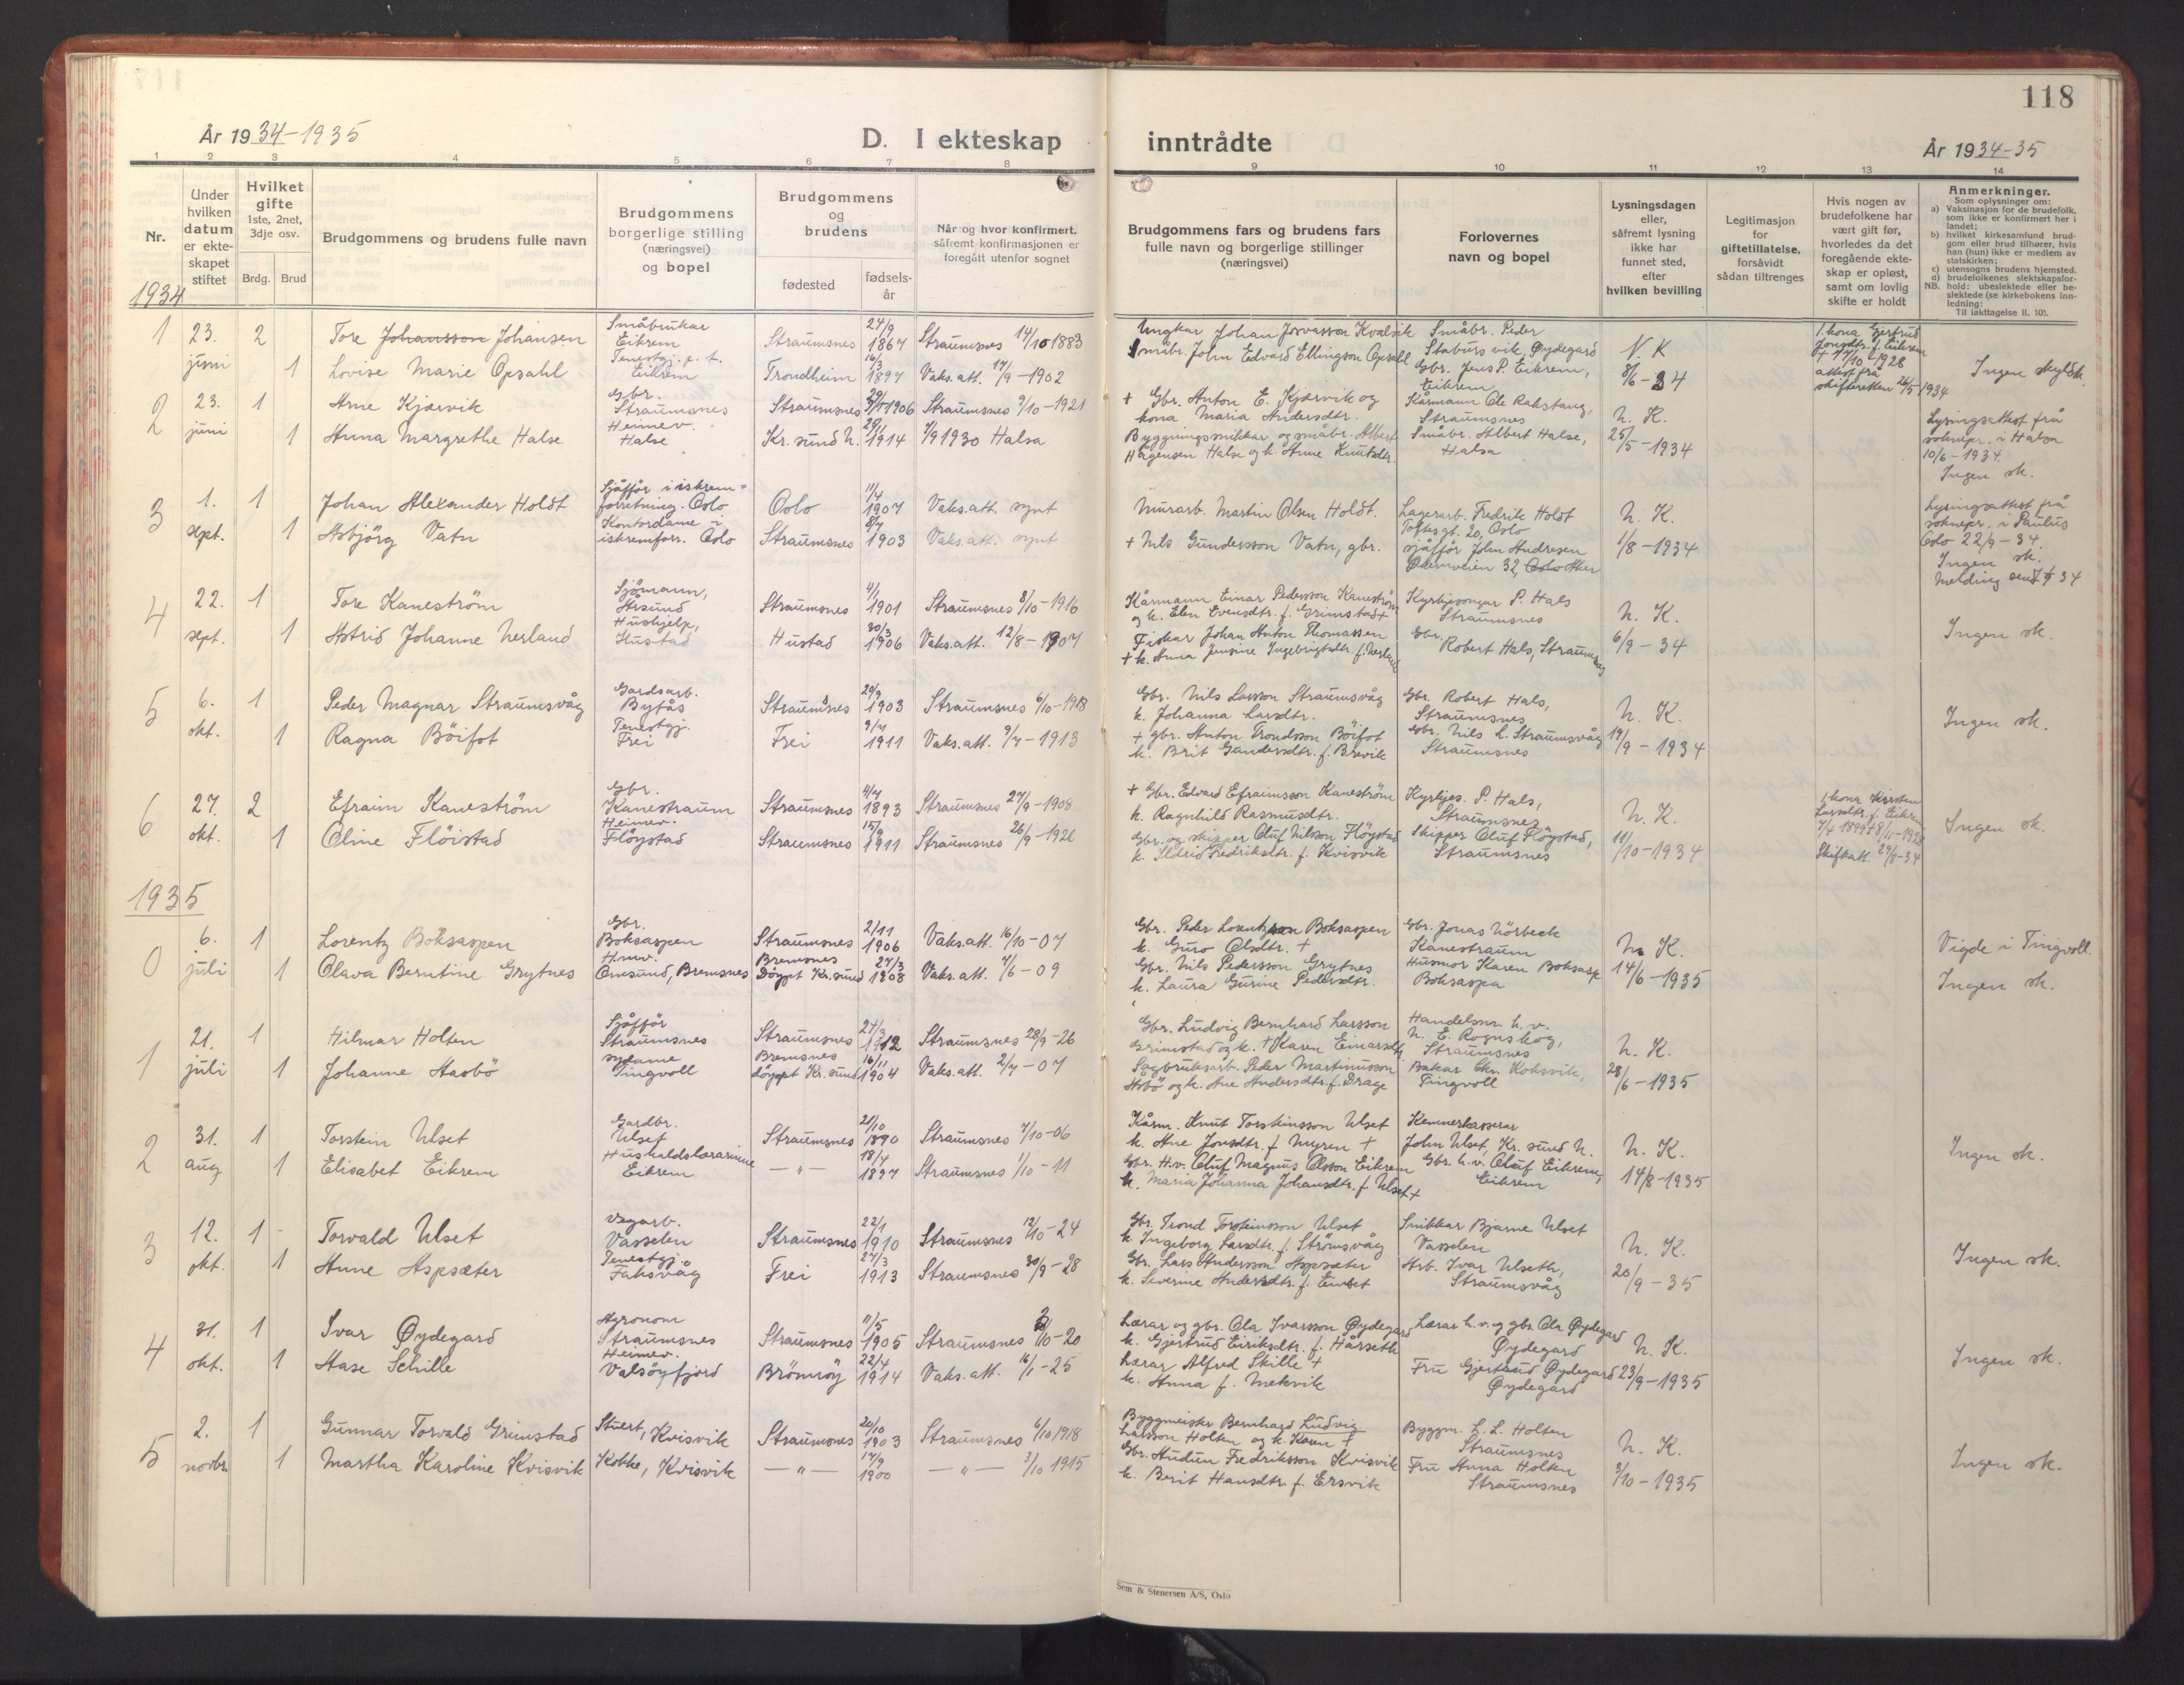 118
År 1934-1935
D. I ekteskap
inntrådte
År 1934-35
1 2 3 4 5 6 7 8 9 10 11 12 13 14
Nr.
Under hvilken datum er ekteskapet stiftet
Hvilket gifte
1ste, 2net, 3dje osv.
Brdg. Brud
Brudgommens og brudens fulle navn
Brudgommens borgerlige stilling (næringsvei) og bopel
Brudgommens og brudens
fødested
fødsels-år
Når og hvor konfirmert, såfremt konfirmasjonen er foregått utenfor sognet
Brudgommens fars og brudens fars fulle navn og borgerlige stillinger (næringsvei)
Forlovernes navn og bopel
Lysningsdagen eller, såfremt lysning ikke har funnet sted, efter hvilken bevilling
Legitimasjon for giftetillatelse, forsåvidt sådan tiltrenges
Hvis nogen av brudefolkene har vært gift før, hvorledes da det foregående ekteskap er opløst, samt om lovlig skifte er holdt
Anmerkninger.
Som oplysninger om:
a) Vaksinasjon for de brudefolk, som ikke er konfirmert her i landet;
b) hvilket kirkesamfund brudgom eller brud tilhører, hvis han (hun) ikke er medlem av statskirken;
c) utensogns brudens hjemsted.
d) brudefolkenes slektskapsforhold: ubeslektede eller beslektede (se kirkebokens innledning:
NB.
Til iakttagelse II. 10).
1934
1 23. juni 2 Tore Johansson Johansen Småbrukar Eikrem Straumsnes 24/9 1867 Straumsnes 14/10 1883
1 Lovise Marie Opsahl Tenestgj. p.t. Eikrem Trondheim 16/3 1897 Vaks.att. 17/9-1902
Ungkar Johan Josvasson Kvalvik
Småbr. John Edvard Ellingson Opsahl
Småbr. Peder Stabursvik, Øydegard
Gbr. Jens P. Eikrem, Eikrem
N.K 8/6-34
1. kona Gjertrud Jonsdtr. f. Eikrem + 17/10-1928 attest frå skifteretten 26/5 1934
Ingen skyldsk.
2 23. juni 1 Arne Kjærvik Gbr. Straumsnes Straumsnes 29/11 1906 Straumsnes 9/10-1921
1 Anna Margrethe Halse Heimev. Halse Kr.sund N. 29/11 1914 7/9 1930 Halsa
+ Gbr. Anton E. Kjærvik og kona Maria Andersdtr.
Byggningssnikkar og småbr. Albert Hågensen Halse og k. Anne Knutsdtr.
Kårmann Ole Rakstang, Straumsnes
Småbr. Albert Halse, Halsa
N. K. 25/5-1934
Lysingsattest frå soknepr. i Halsa 10/6-1934. Ingen sk.
3 1. sept. 1 Johan Alexander Holdt Sjåffør i iskrem= forretning. Oslo Oslo 11/4 1907 Vaks.att. synt
1 Asbjörg Vatn Kontordame i iskremforr. Oslo Straumsnes 8/7 1903 Vaks.att. synt
Murarb. Martin Olsen Holdt.
+ Nils Gundersson Vatn, gbr.
Lagerarb. Fredrik Holdt Toftesgt. 20, Oslo
Sjåffør John Andresen
N. K. 1/8-1934
Lysingsattest frå soknepr. i Paulus Oslo 22/9-34. Ingen sk.
4 22. sept. 1 Tore Kaneström Sjömann, Årsund Straumsnes 4/1 1901 Straumsnes 8/10-1916
1 Astrid Johanne Nerland Hushjelp, Hustad Hustad 30/3 1906 Vaks.att. 12/8-1907
Kårmann Einar Pedersson Kaneström og k. Elen Evensdtr. f. Grimstad+
Fiskar Johan Anton Thomassen + k. Anna Jensine Ingebrigtsdtr. f. Nerland
Kyrkjesongar P. Hals Straumsnes
Gbr. Robert Hals, Straumsnes
N. K. 6/9-34
Ingen sk.
5 6. okt. 1 Peder Magnar Straumsvåg Gardsarb. Byfås Straumsnes 29/9 1903 Straumsnes 6/10-1918
1 Ragna Böifot Tenestgj. Frei Frei 9/4 1911 Vaks.att. 9/7-1913
Gbr. Nils Larsson Straumsvåg k. Johanna Larsdtr.
+ gbr. Anton Trondsson Böifot k. Brit Gundersdtr. f. Brevik
Gbr. Robert Hals, Straumsnes
Gbr. Nils L. Straumsvåg Straumsnes
N. K. 19/9-1934
Ingen sk.
6 27. okt. 2 Efraim Kaneström Gbr. Kanestraum Straumsnes 4/7 1893 Straumsnes 27/9-1908
1 Oline Flöistad Heimev. Flöystad Straumsnes 15/9 1911 Straumsnes 26/9-1926
+ Gbr. Edvard Efraimsson Kaneström k. Ragnhild Rasmusdtr.
Gbr. og skipper Oluf Nilsson Flöystad k. Ildrid Fredriksdtr. f. Kvisvik
Kyrkjes. P. Hals, Straumsnes
Skipper Oluf Flögstad, Straumsnes
N. K. 11/10-1934
1. kona Kirsten Larsdtr. f. Eikrem 7/4 1899 + 8/11-1928 Skifteatt. 29/8-34
Ingen sk.
1935
0 6. juli 1 Lorentz Boksaspen Gbr. Boksaspen Straumsnes 2/11 1906 Vaks.att. 16/10-07
1 Olava Berntine Grytnes H.mv. Omsund, Bremsnes Bremsnes Döypt Kr.sund 27/3 1908 Vaks.att. 7/6-09
Gbr. Peder Lorentzson Boksaspen k. Guro Olsdtr. +
Gbr. Nils Pedersson Grytnes k. Laura Gurine Pedersdtr.
Gbr. Jonas Nörbeck Kanestraum
Husmor Karen Boksasp Boksaspa
N. K. 14/6-1935
Vigde i Tingvoll. Ingen sk.
1 21. juli 1 Hilmar Holten Sjåffør Straumsnes Straumsnes 27/3 1912 Straumsnes 28/9-26
1 Johanne Aasbö sydame Tingvoll Bremsnes döypt Kr.sund 16/11 1904 Vaks.att. 2/7-07
Gbr. Ludvig Bernhard Larsson Grimstad og k. + Karen Einarsdtr.
Sagbruksarb. Peder Martinusson Åsbö og k. Ane Andersdtr. f. Drage
Handelsm. h.v. N. E. Rognskog, Straumsnes
Bakar Chr. Koksvik, Tingvoll
N. K. 28/6-1935
2 31. aug 1 Torstein Ulset Gardbr. Ulset Straumsnes 21/10 1890 Straumsnes 7/10-06
1 Elisabet Eikrem Hushaldslærarinne Eikrem —"— 18/4 1897 Straumsnes 1/10-11
Kårm. Knut Torsteinsson Ulset k. Ane Jonsdtr. f. Myren +
Gbr. H.v. Oluf Magnus Olsson Eikrem k. Maria Johanna Johansdtr. f. Ulset +
Kemnerkasserar John Ulset, Kr.sund N.
Gbr. h.v. Oluf Eikrem, Eikrem
N. K. 14/8-1935
Ingen sk.
3 12. okt. 1 Torvald Ulset Vegarb. Vasselen Straumsnes 22/1 1910 Straumsnes 12/10-24
1 Anne Aspsæter Tenestgj. Faksvåg Frei 27/3 1913 Straumsnes 30/9-28
Gbr. Trond Torsteinsson Ulset k. Ingeborg Larsdtr. f. Strömsvåg
Gbr. Lars Andersson Aspsæter k. Severine Andersdtr. f. Einset
Snikkar Bjarne Ulset Vasselen
Arb. Ivar Ulseth, Straumsvåg
N. K. 20/9-35
Ingen sk.
4 31. okt. 1 Ivar Øydegard Agronom Straumsnes Straumsnes 11/5 1905 Straumsnes 3/10-20
1 Aase Schille Heimev. Valsöyfjord Brönnöy 22/4 1914 Vaks.att. 16/1-25
Lærar og gbr. Ola Ivarsson Øydegard k. Gjertrud Eiriksdtr. f. Hårseth
Lærar Alfred Skille + k. Anna f. Mekvik
Lærar h.v. og gbr. Ola Øydegard Øydegard
Fru Gjertrud Øydegard Øydegard
N. K. 23/9-1935
Ingen sk.
5 2. novbr. 1 Gunnar Torvald Grimstad Stuert, Kvisvik Straumsnes 20/10 1903 Straumsnes 6/10 1918
1 Martha Karoline Kvisvik Kokke, Kvisvik —"— 17/9 1900 —"— 3/10 1915
Byggmeister Bernhard Ludvig Larsson Holten og k. Karen +
Gbr. Audun Fredriksson Kvisvik k. Berit Hansdtr. f. Ersvik
Byggm. L. L. Holten Straumsnes
Fru Anna Holten Straumsnes
N. K. 3/10-1935
Ingen sk.
Sem & Stenersen A/S, Oslo